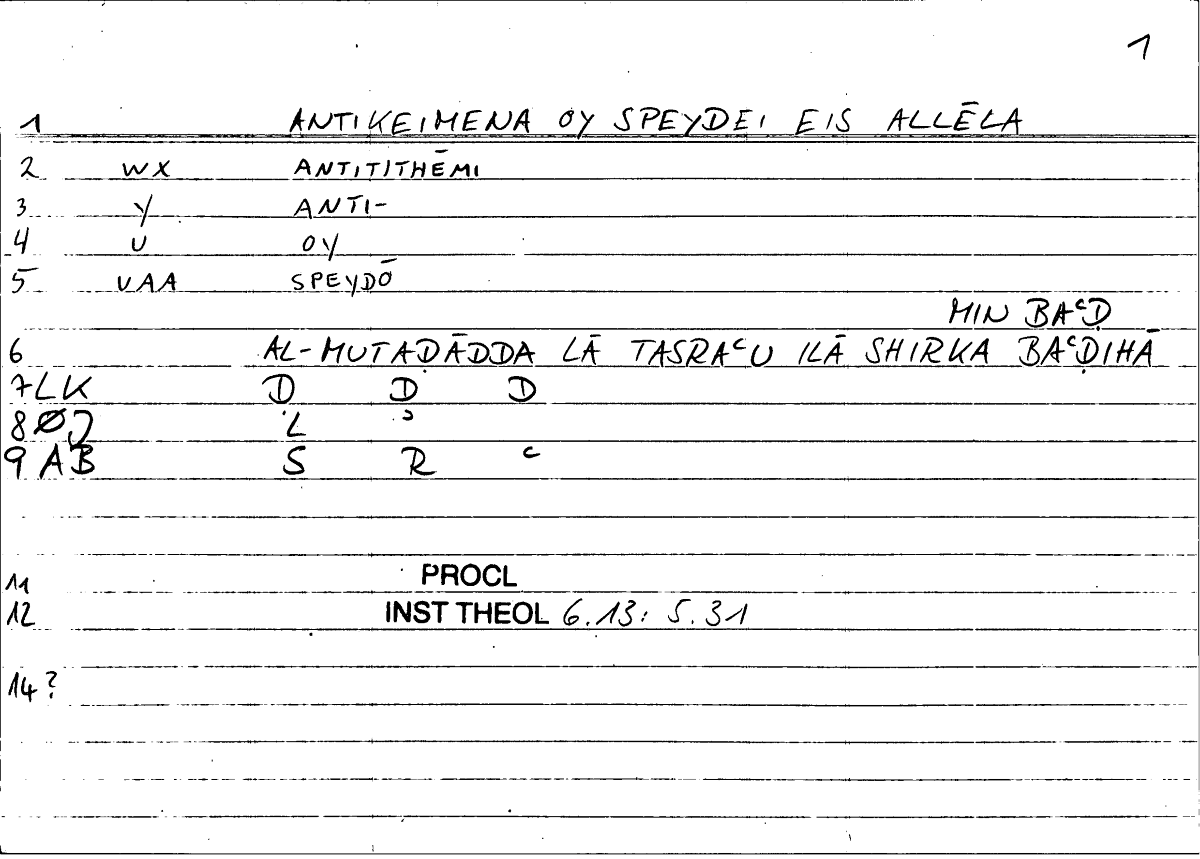 1
1 ANTIKEIMENA OY SPEYDEI EIS ALLĒLA
2 WX ANTITITHĒMI
3 Y ANTI-
4 U OY
5 UAA SPEYDŌ
MIN BAᶜḌ
6 AL-MUTAḌĀDDA LĀ TASRAᶜU ILĀ SHIRKA BAᶜḌIHĀ
7 LK Ḍ D D
8 ØJ L ʾ
9 AB S R ᶜ
11 PROCL
12 INST THEOL 6.13: 5.31
14?